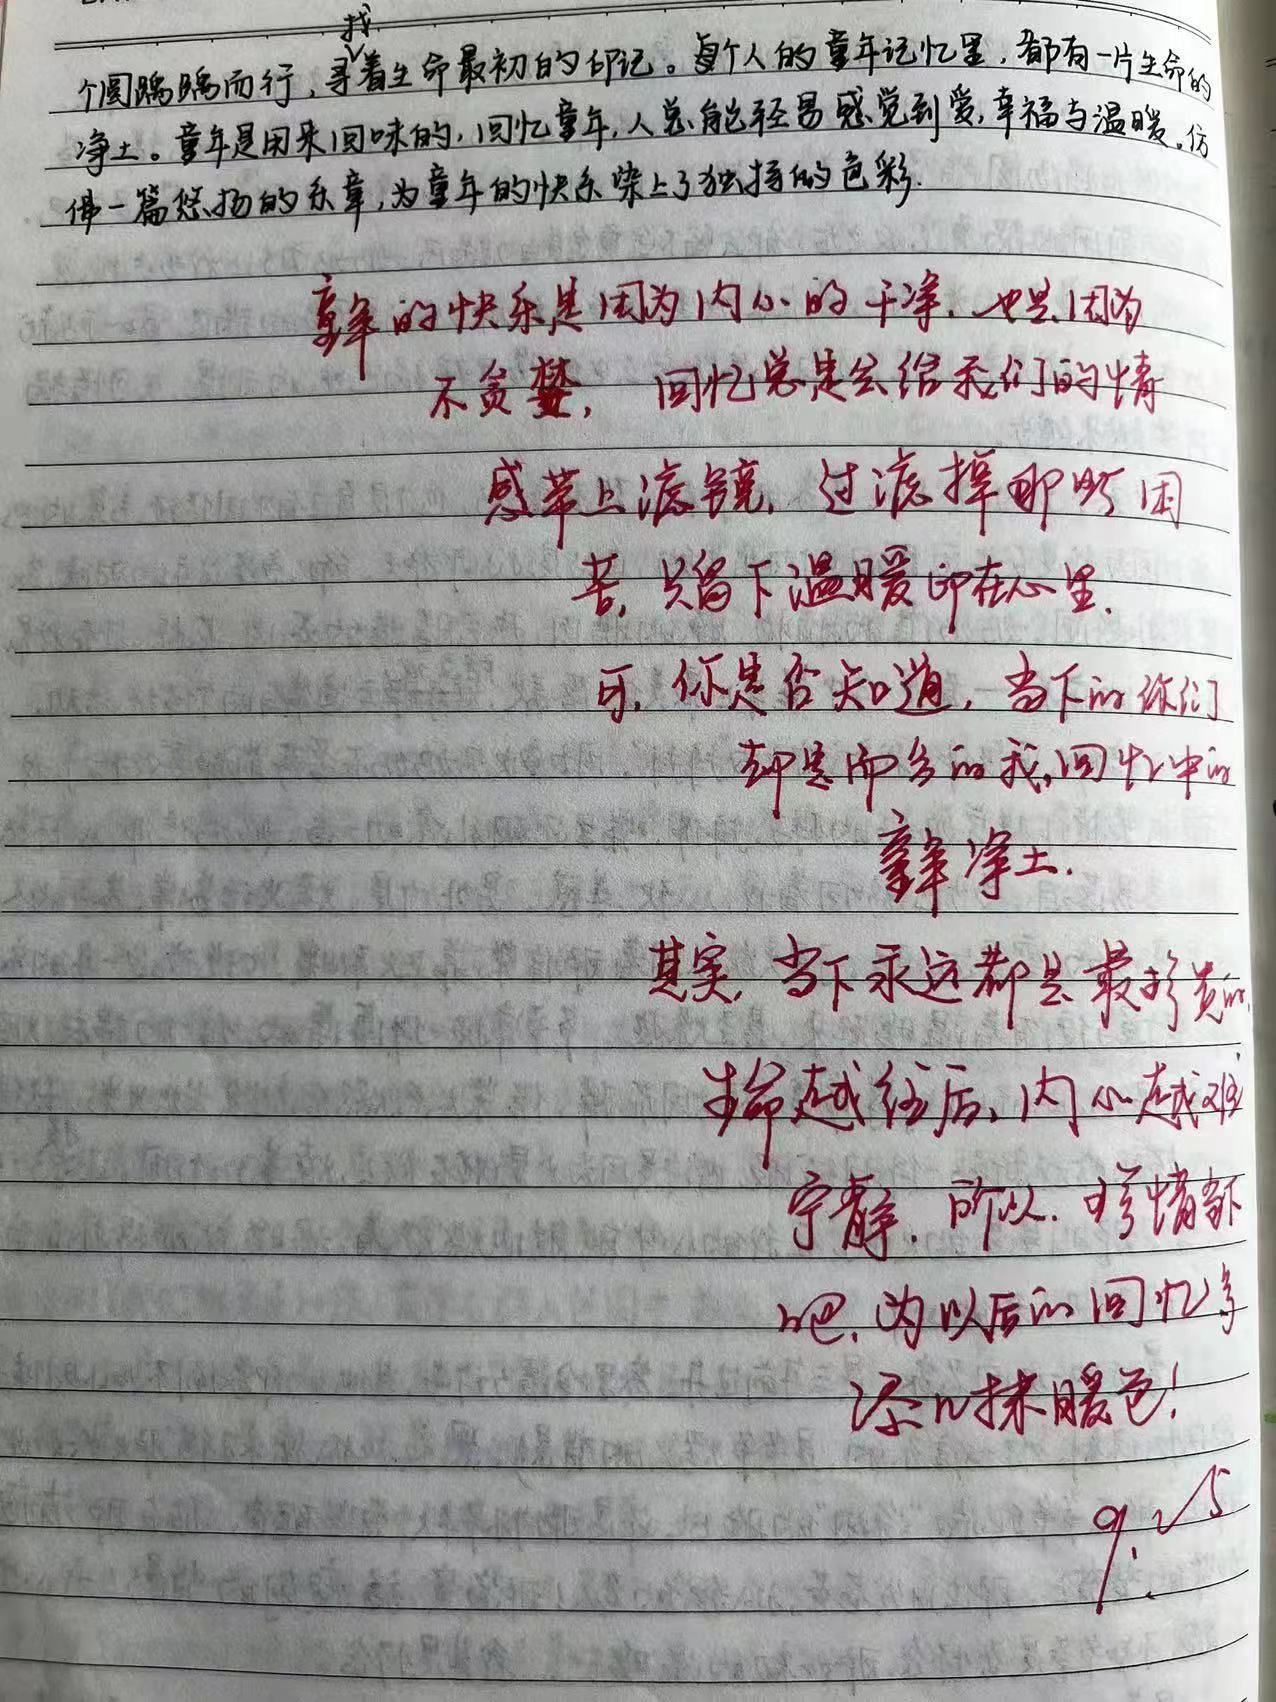 找
个圆踽踽而行，寻着生命最初的印记。每个人的童年记忆里，都有一片生命的
净土。童年是用来回味的，回忆童年，人总能轻易感觉到爱，幸福与温暖。仿
佛一篇悠扬的乐章，为童年的快乐染上了独特的色彩.
童年的快乐是因为内心的干净，也是因为
不贪婪， 回忆总是会给我们的情
感带上滤镜，过滤掉那些困
苦，只留下温暖印在心里.
可，你是否知道，当下的你们
却是而今的我，回忆中的
童年净土.
其实，当下永远都是最珍贵的，
生命越往后，内心越难
宁静，所以，珍惜当下
吧，为以后的回忆多
添几抹暖色！
9.25